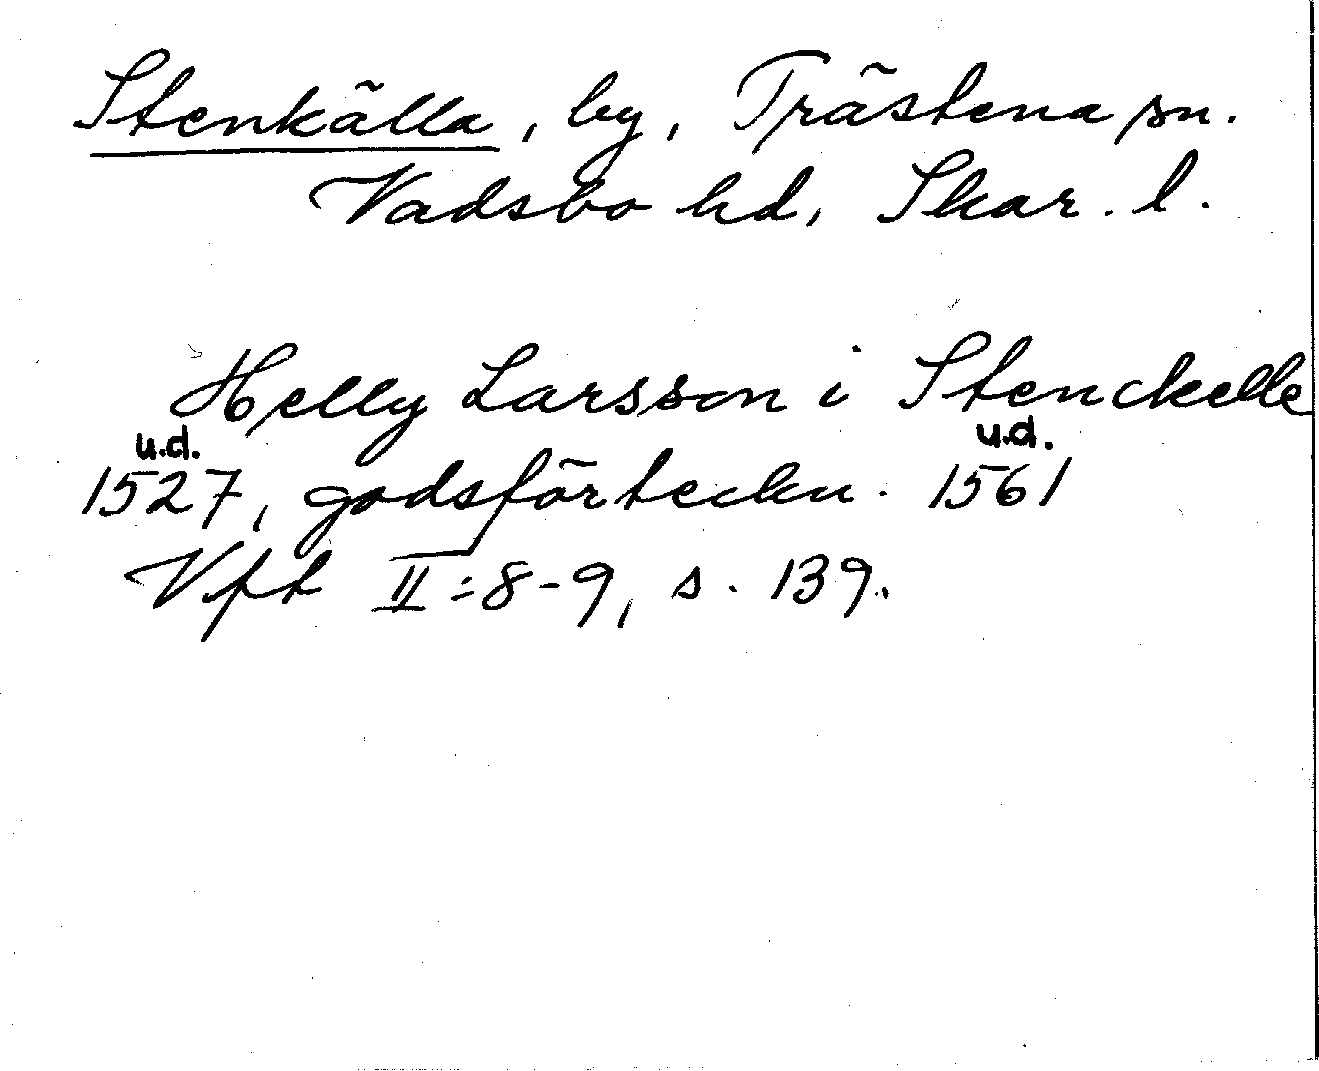 Stenkälla, by, Trästena sn.
Vadsbo hd, Skar. l.
Helly Larsson i Stenckelle
u.d. u.d.
1527, godsförteckn. 1561
Vft II:8-9, s. 139.